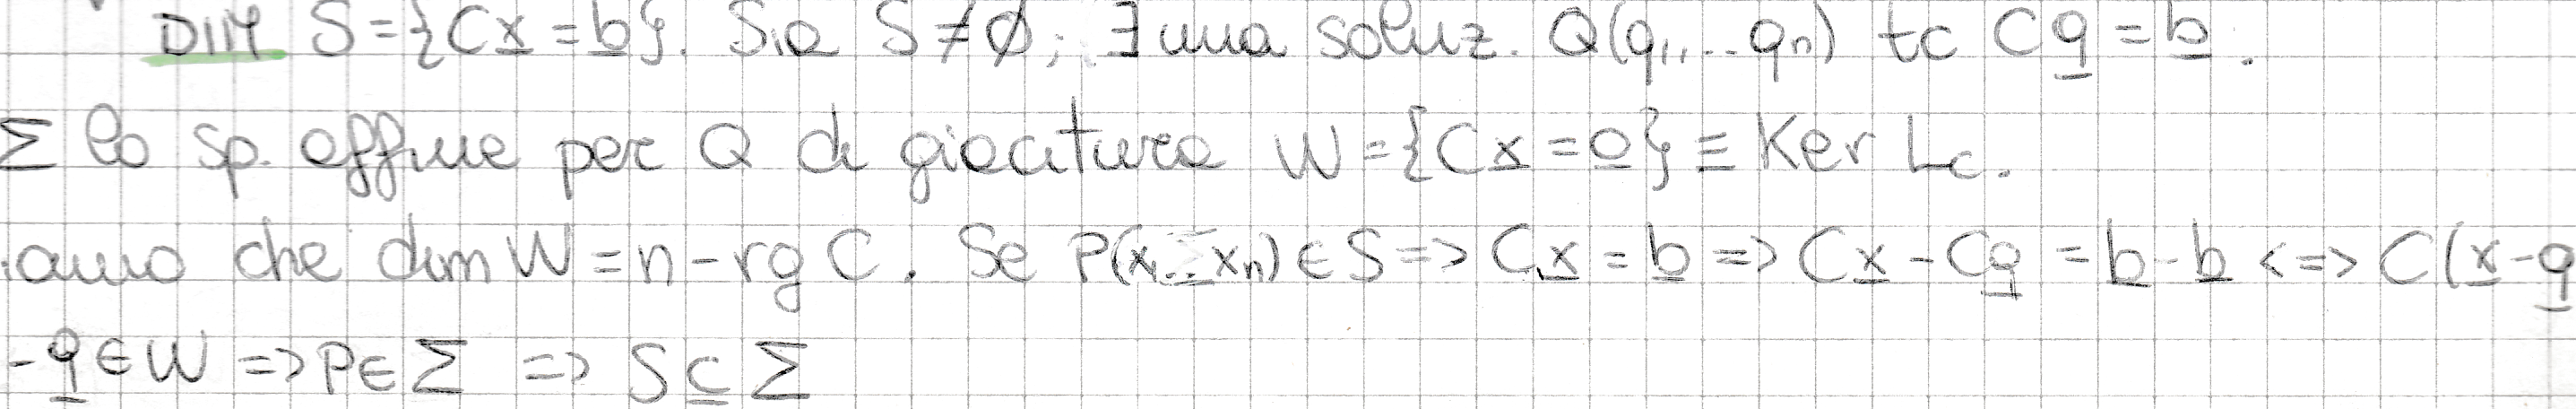 DIM S={Cx=b}. Sia S≠∅; ∃ una soluz. Q(q1,...qn) tc Cq=b.
Σ lo sp. affine per Q di giacitura W={Cx=0}≡Ker Lc.
iamo che dim W=n-rg C. Se P(x1...xn)∈S => Cx=b => Cx-Cq=b-b <=> C(x-q
-q∈W => P∈Σ => S⊆Σ